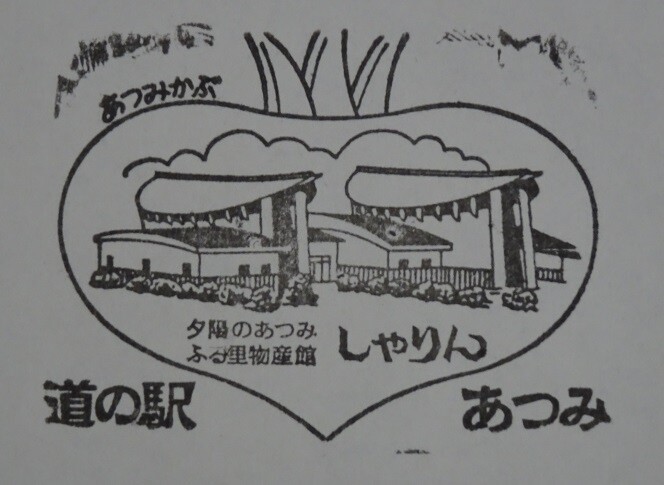 あつみかぶ
夕陽のあつみ
ふる里物産館
しゃりん
道の駅
あつみ